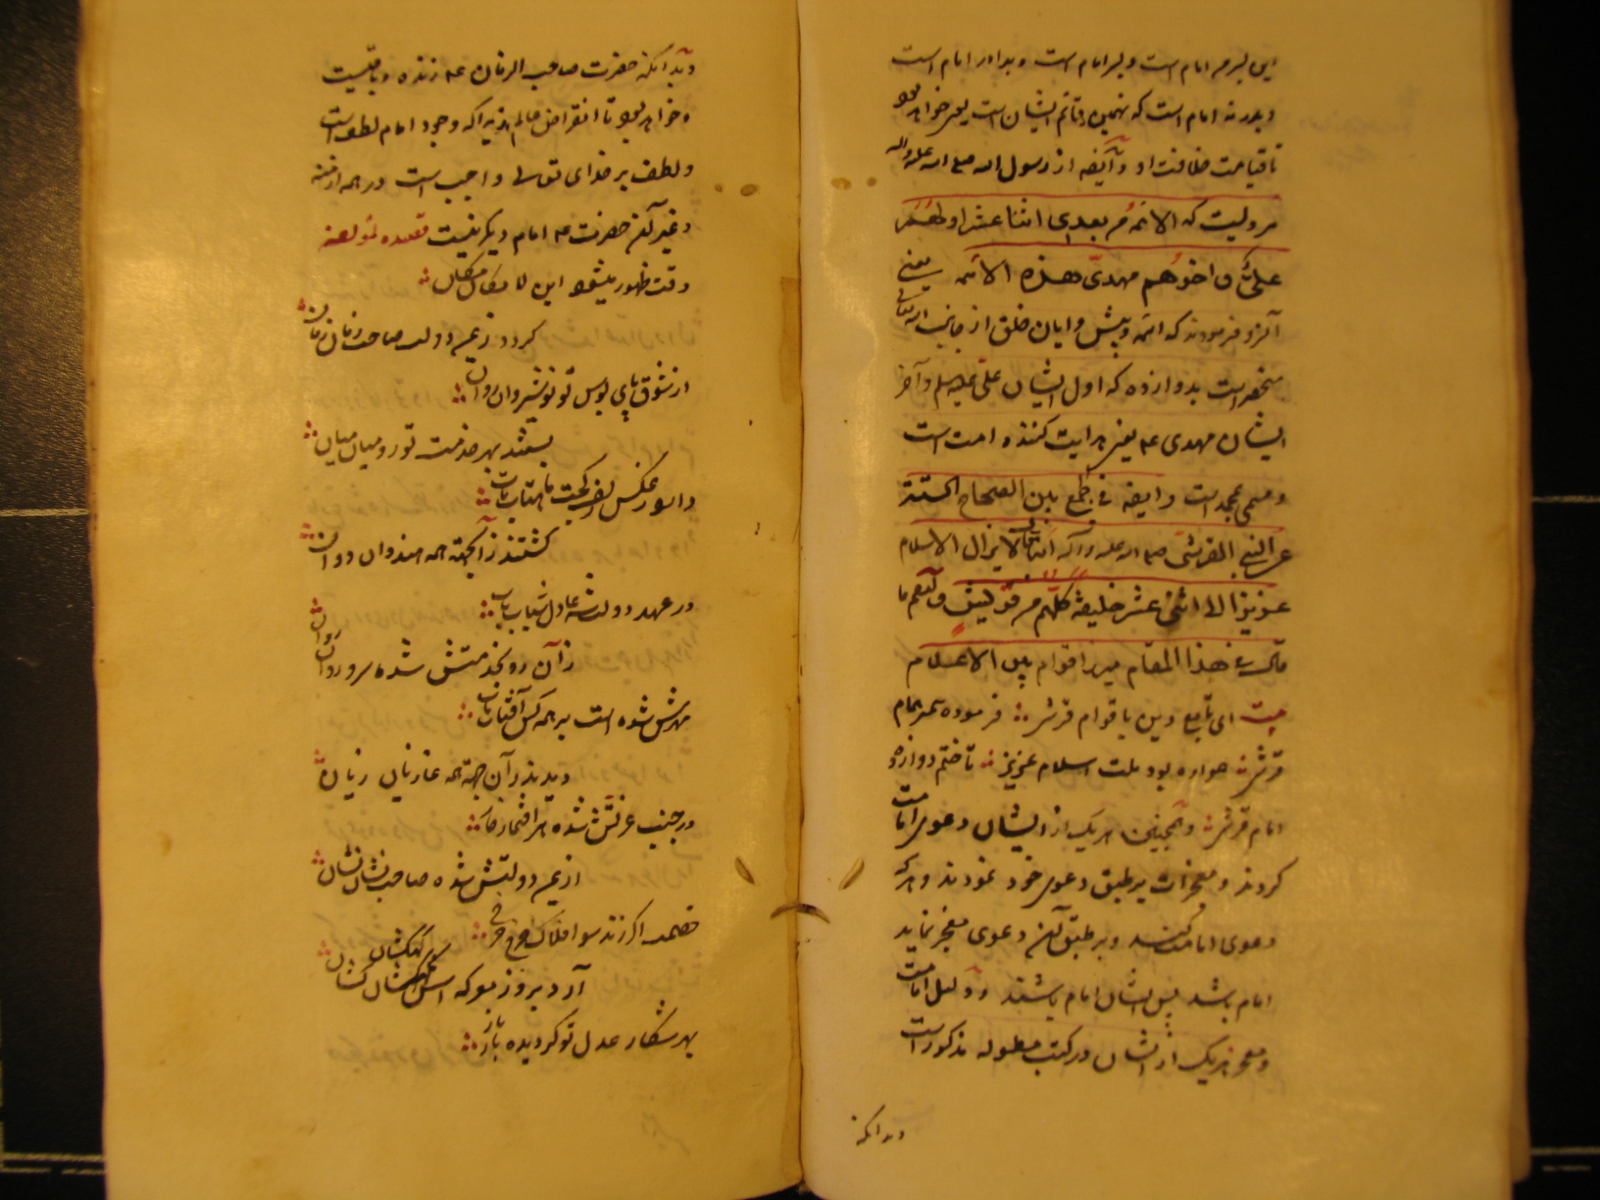 این پسر مه امام است و پسر امام است و برادر امام است
و پدر نه امام است که نهمین قائم ایشان است یعنی خواهد بود
تا قیامت خلافت او و ایضا از رسول الله صلی الله علیه و اله
مرویست که الائمه من بعدی اثنا عشر اولهم
علی و اخرهم مهدی هذه الامه یعنی
فرمودند که ائمه و پیشوایان خلق از جانب الله تعالی
منحصر است بدوازده که اول ایشان علی علیه السلم و آخر
ایشان مهدی عه یعنی هدایت کننده امت است
و مسمی بمحمد است و ایضا فی جمع بین الصحاح الستة
عن النبی القرشی صلی الله علیه و آله انه قال لا یزال الاسلام
عزیزا الی اثنی عشر خلیفة کلهم من قریش و لنعم ما
قال فی هذا المقام میر اقوام بین الاعلام
بیت ای تابع دین با قوام قرشی فرموده
قرشی همواره بود ملت اسلام عزیز تا ختم دوازده
امام قرشی و همچنین هر یک از ایشان دعوی امامت
کردند و معجزات بر طبق دعوی خود نمودند و هر که
دعوی امامت کند و بر طبق آن دعوی معجز نماید
امام باشد پس ایشان امام باشند و دلیل امامت
و معجز هر یک از ایشان در کتب مطوله مذکور است
و بدانکه
و بدانکه حضرت صاحب الزمان عه زنده و باقیست
و خواهد بود تا انقراض عالم زیرا که وجود امام لطف است
و لطف بر خدای تعالی واجب است در همه ازمنه
و غیر آن حضرت عه امام دیگر نیست قصیده لمؤلفه
وقت ظهور میشود این لا مکان مکان
گردد زیمن دولت صاحب زمان زمان
از شوق پای بوس تو نوشیروان روان
بستند بهر خدمت تو رومیان میان
کشتند زآنجهة همه هندوان دوان
در عهد دولت شه عادل شباب یاب
زآن رو بخدمتش شده سرو روان روان
مهرش شده است بر همه کس آفتاب تاب
دیدند زآن جهة همه غازیان زیان
در جنب عزتش شده
از یمن دولتش شده صاحب نشان نشان
خصمت اگر زند سوی افلاک
آرد بروز معرکه اش کهکشان کشان
بهر شکار عدل تو گردیده باز باز